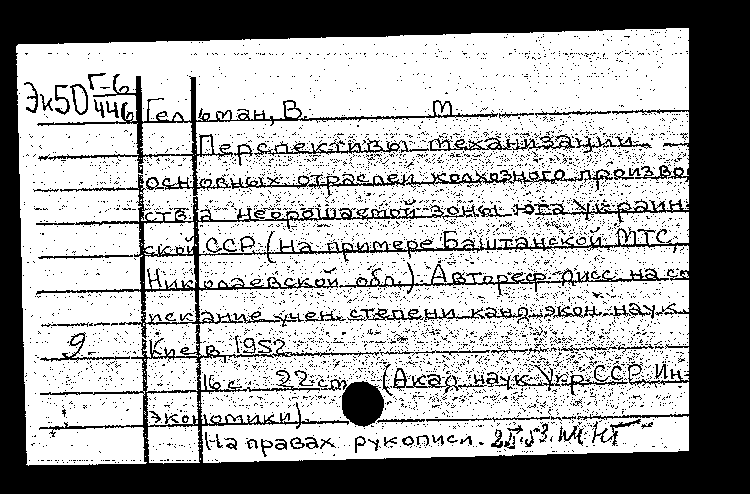 Эк50 Г-6/446
Гельман, В. М.
Перспективы механизации
основных отраслей колхозного произво
ства неорошаемой зоны юга Украин-
ской ССР (На примере Баштанской МТС,
Николаевской обл.). Автореф. дисс. на со
искание учен. степени канд. экон. наук.
9. Киев, 1952
16 с. 22 cm (Акад. наук Укр. ССР. Ин-
экономики).
На правах рукописи.